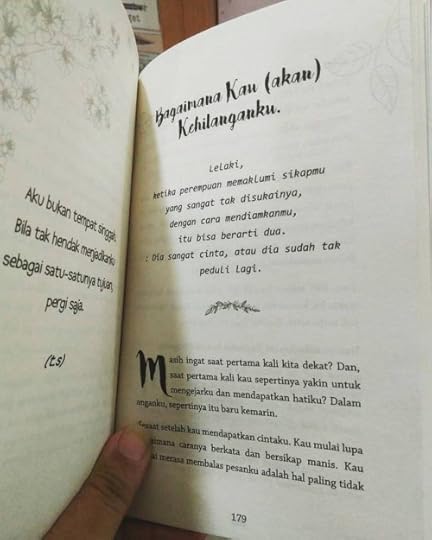 Aku bukan tempat singgah.
Bila tak hendak menjadikanku
sebagai satu-satunya tujuan,
pergi saja.
(ts)
Bagaimana Kau (akan)
Kehilanganku.
Lelaki,
ketika perempuan memaklumi sikapmu
yang sangat tak disukainya,
dengan cara mendiamkanmu,
itu bisa berarti dua.
: Dia sangat cinta, atau dia sudah tak
peduli lagi.
Masih ingat saat pertama kali kita dekat? Dan,
saat pertama kali kau sepertinya yakin untuk
mengejarku dan mendapatkan hatiku? Dalam
anganku, sepertinya itu baru kemarin.
Sesaat setelah kau mendapatkan cintaku. Kau mulai lupa
caranya berkata dan bersikap manis. Kau
merasa membalas pesanku adalah hal paling tidak
179